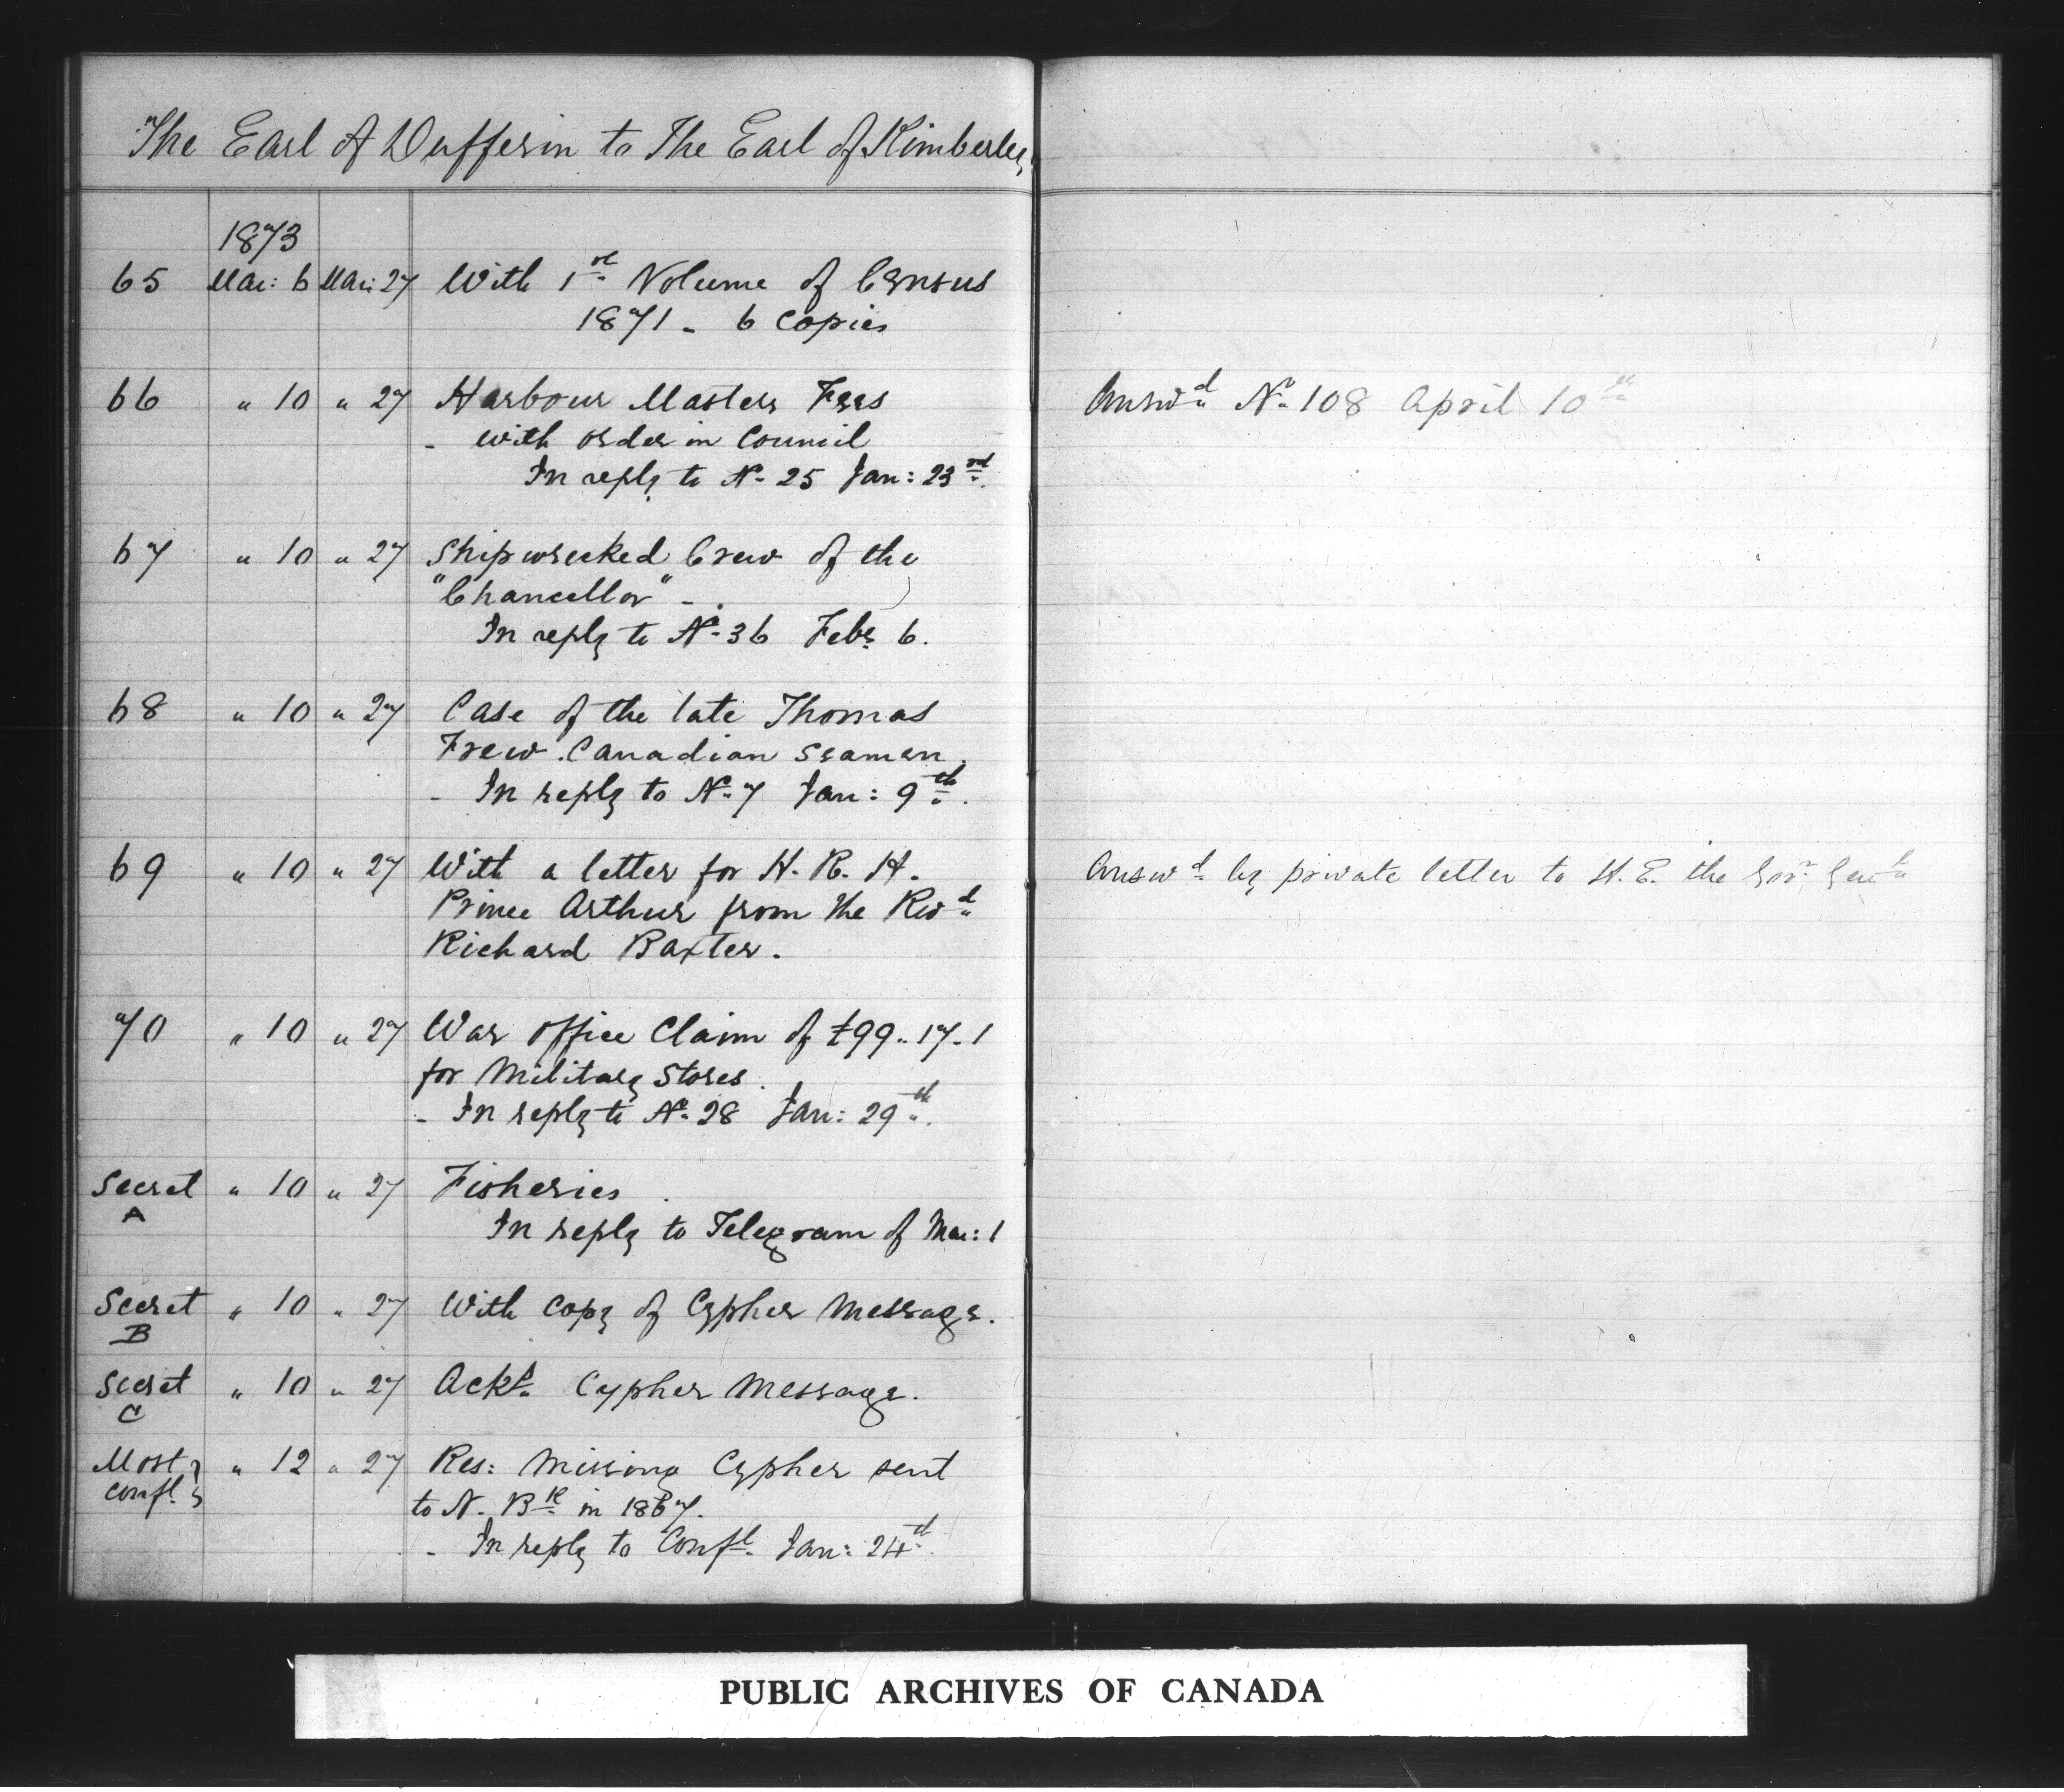 The Earl of Dufferin to The Earl of Kimberley
1873
65 Mar: 6 Mar: 27 With 1st Volume of Census
1871 - 6 Copies
66 " 10 " 27 Harbour Masters Fees Answd No 108 April 10th
- with order in Council
In reply to No 25 Jan: 23rd.
67 " 10 " 27 Shipwrecked Crew of the
"Chancellor" -.
In reply to No 36 Feby 6.
68 " 10 " 27 Case of the late Thomas
Frew. Canadian Seaman.
- In reply to No 7 Jan: 9th.
69 " 10 " 27 With a letter for H. R. H. Answd by private letter to H. E. the Govr Genl
Prince Arthur from the Revd
Richard Baxter.
70 " 10 " 27 War Office Claim of £99.. 17. 1
for Military Stores.
- In reply to No 28 Jan: 29th.
Secret " 10 " 27 Fisheries.
A
In reply to Telegram of Mar: 1
Secret " 10 " 27 With copy of Cypher Message.
B
Secret " 10 " 27 Ackt. Cypher Message.
C
Most " 12 " 27 Res: Missing Cypher sent
Confl. to N. Bk in 1867.
- In reply to Confl. Jan: 24th.
PUBLIC ARCHIVES OF CANADA